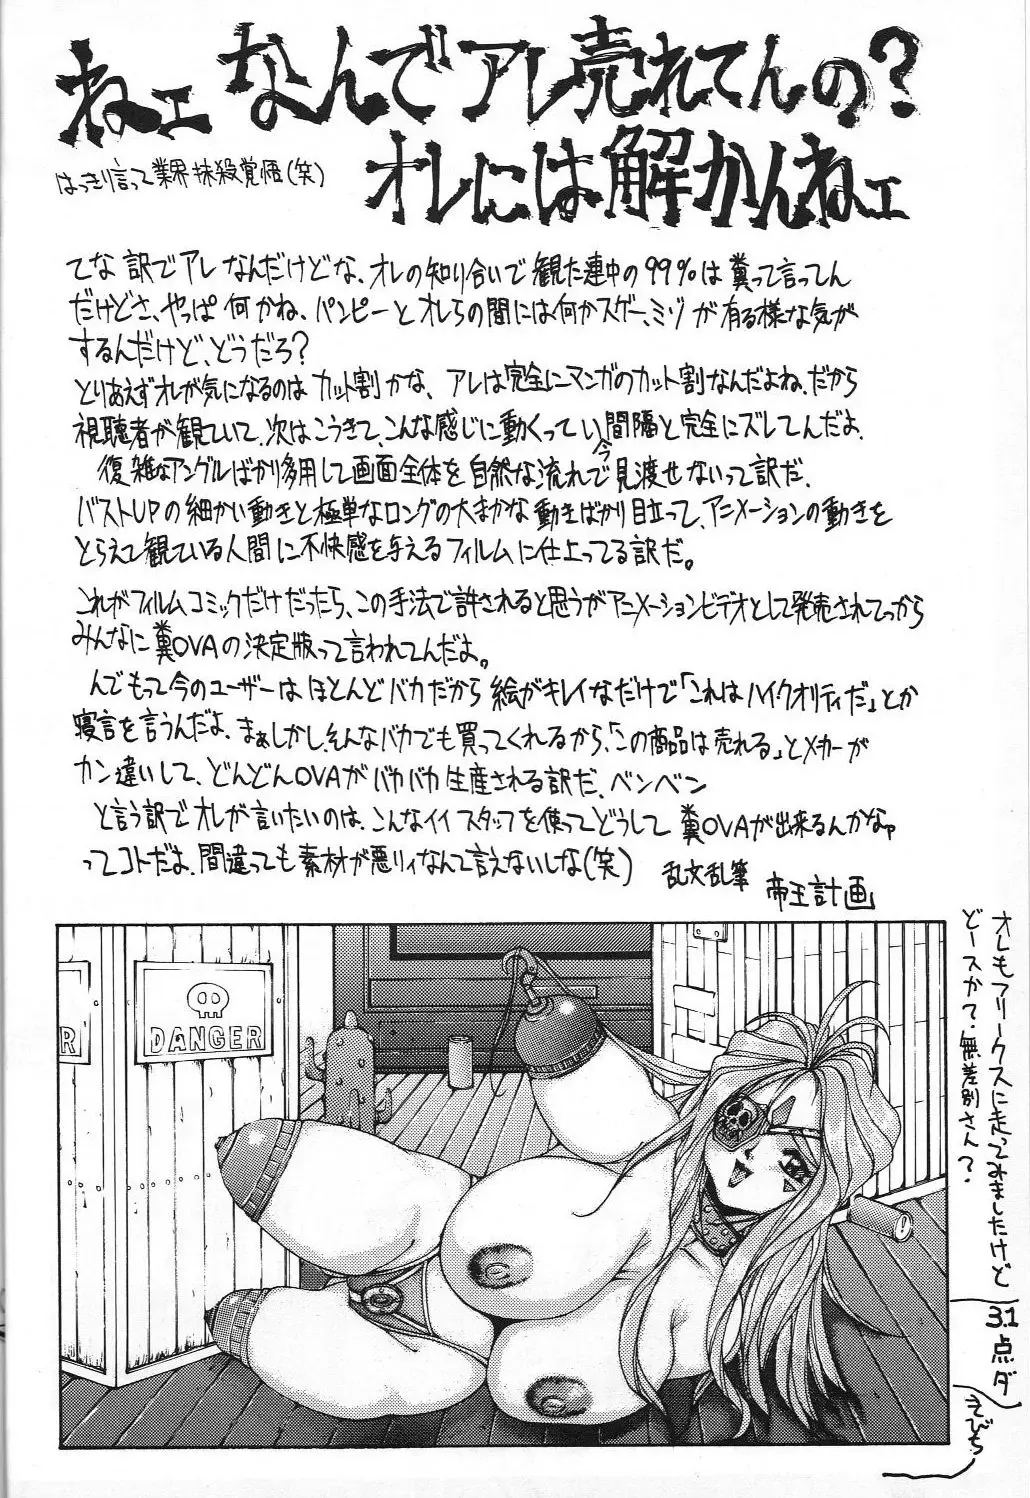 ねェ なんでアレ売れてんの?
オレには解かんねェ
はっきり言って業界抹殺覚悟(笑)
てな訳でアレなんだけどな、オレの知り合いで観た連中の99%は糞って言ってん
だけどさ、やっぱ何かね、パンピーとオレらの間には何かスゲー、ミゾが有る様な気が
するんだけど、どうだろ?
とりあえずオレが気になるのはカット割かな、アレは完全にマンガのカット割なんだよね、だから
視聴者が観ていて、次はこうきて、こんな感じに動くってい間隔と完全にズレてんだよ、
復雑なアングルばかり多用して画面全体を自然な流れで今見渡せないって訳だ、
バストUPの細かい動きと極単なロングの大まかな動きばかり目立って、アニメーションの動きを
とらえて観ている人間に不快感を与えるフィルムに仕上ってる訳だ。
これがフィルムコミックだけだったら、この手法で許されると思うがアニメーションビデオとして発売されてっから
みんなに糞OVAの決定版って言われてんだよ。
んでもって今のユーザーはほとんどバカだから絵がキレイなだけで「これはハイクオリティだ」とか
寝言を言うんだよ、まぁしかし、そんなバカでも買ってくれるから、「この商品は売れる」とメーカーが
カン違いして、どんどんOVAがバカバカ生産される訳だ、ベンベン
と言う訳でオレが言いたいのは、こんなイイスタッフを使ってどうして糞OVAが出来るんかなァ
ってコトだよ、間違っても素材が悪リィなんて言えないしな(笑)
乱文乱筆
帝王計画
オレもフリークスに走ってみましたけど
どースかて、無差別さん?
31点ダ
えびち
R
DANGER
!